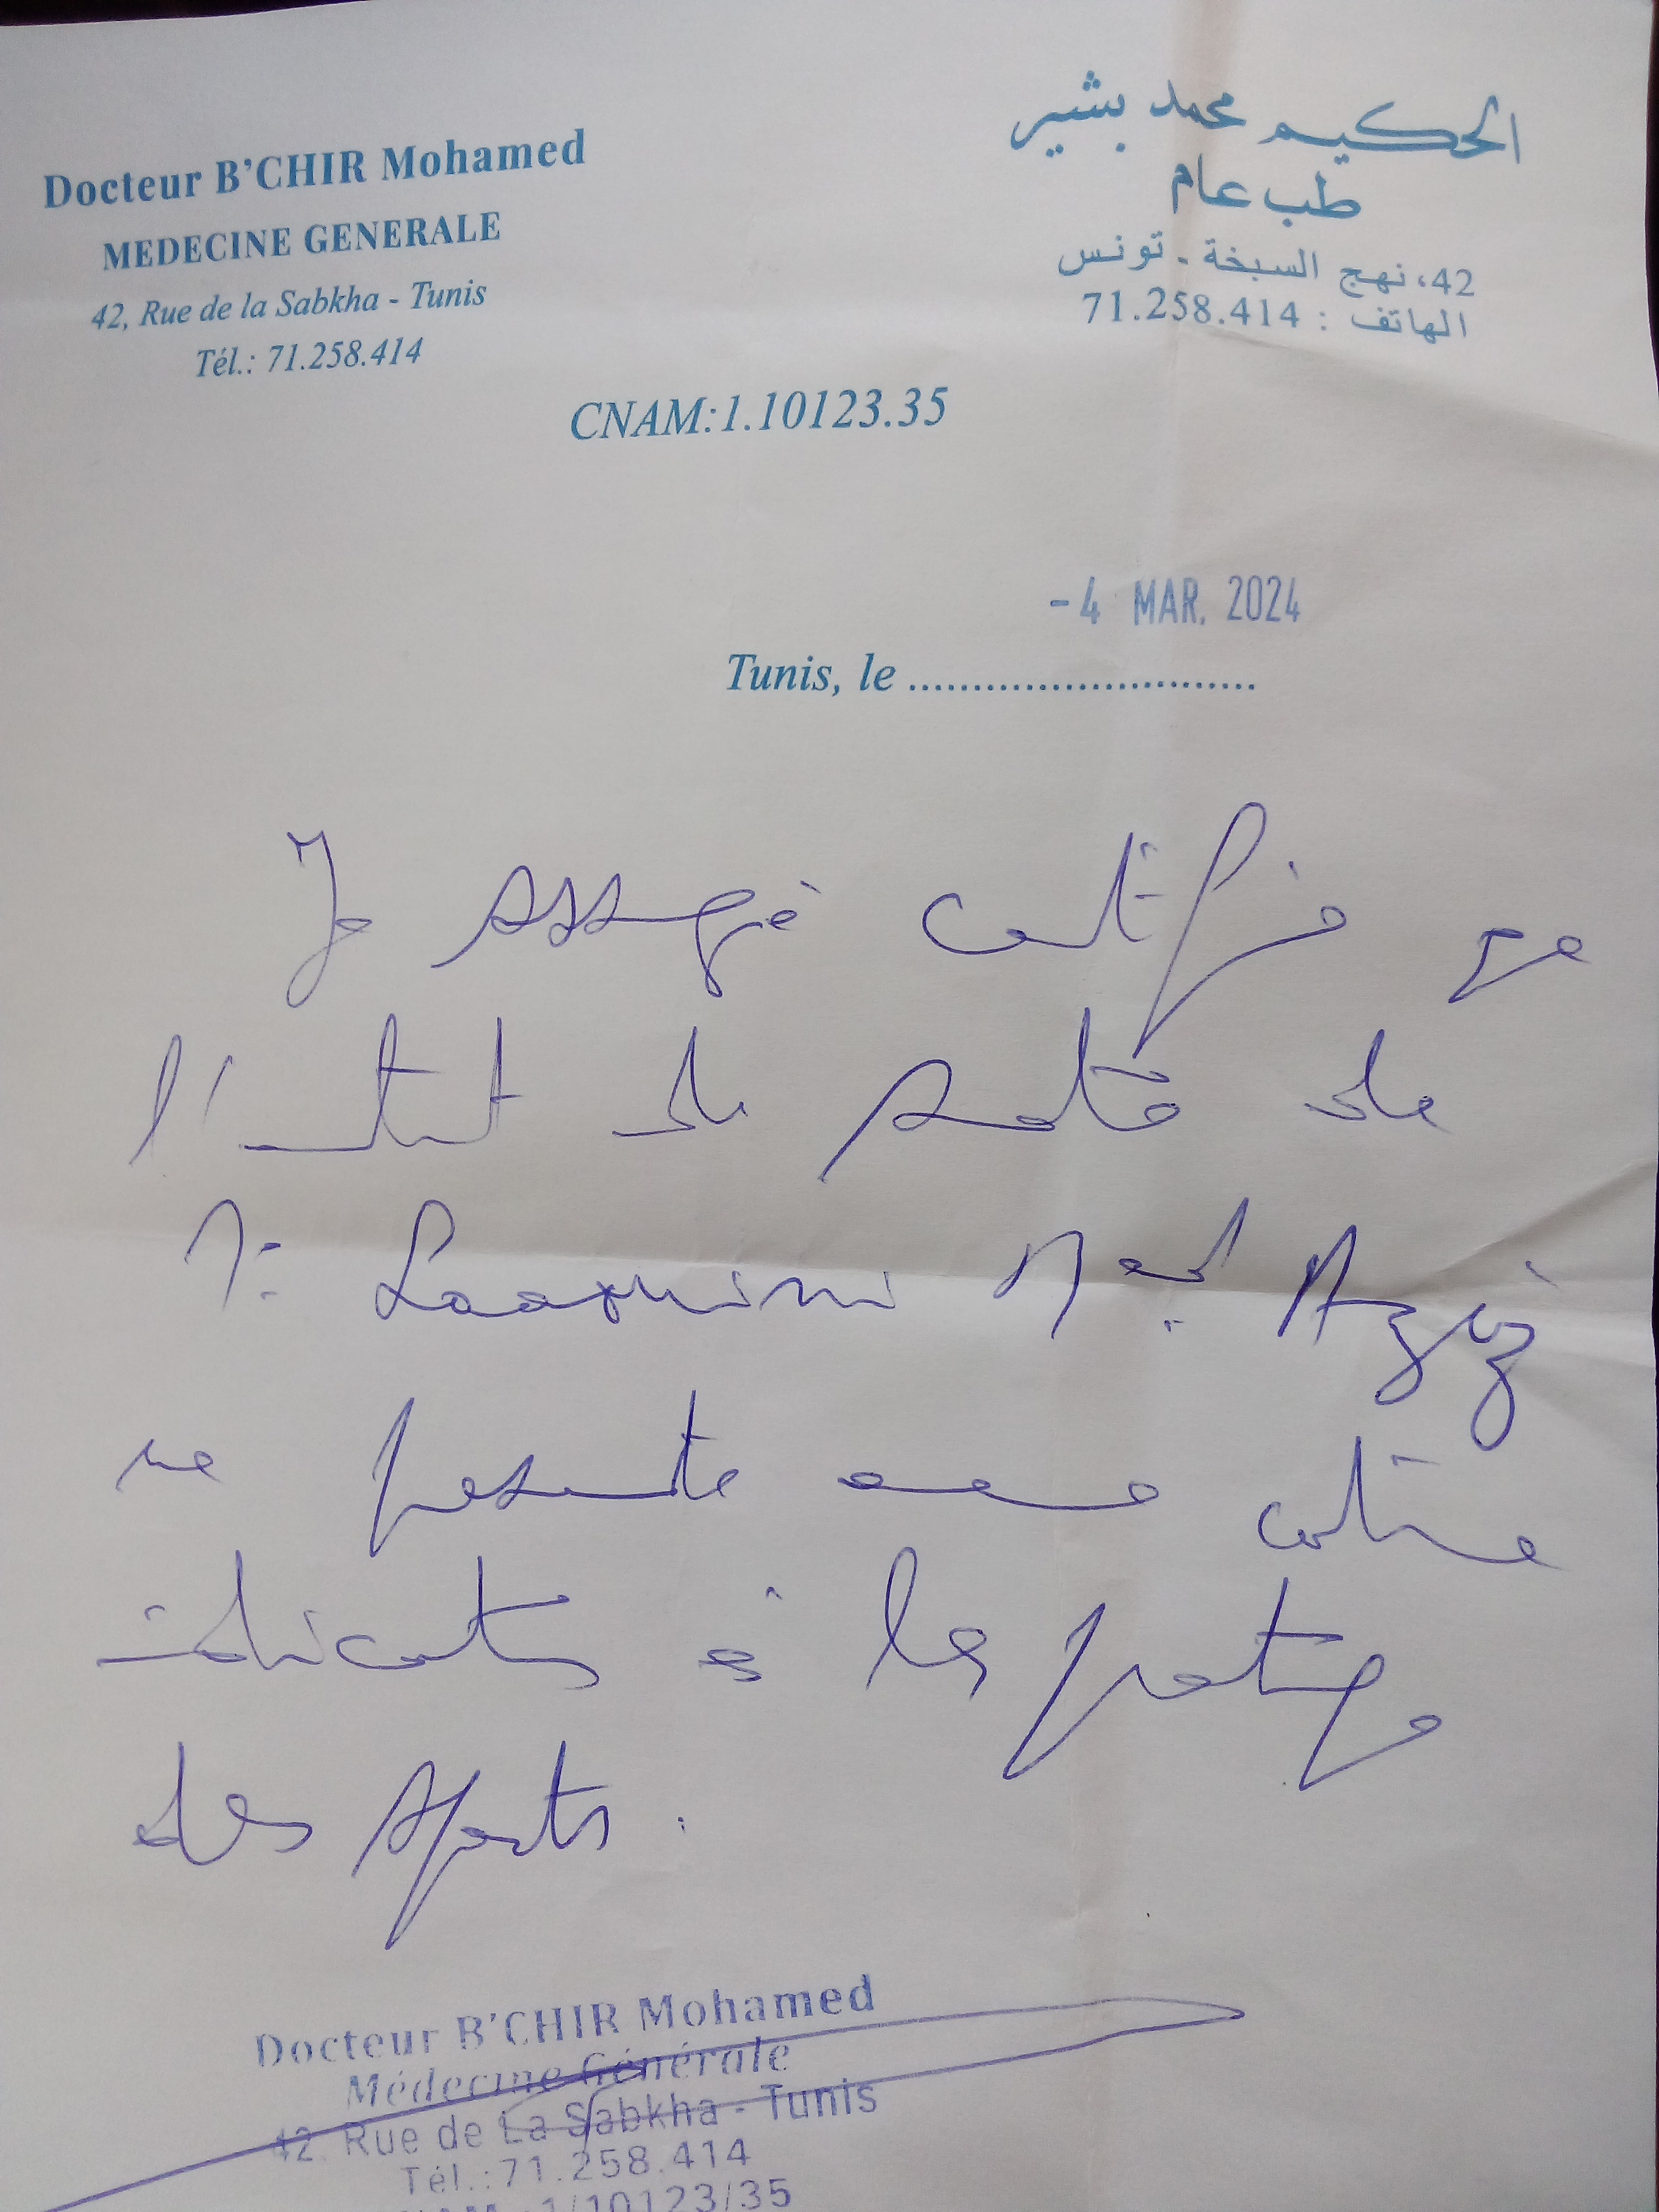 Docteur B'CHIR Mohamed
MEDECINE GENERALE
42, Rue de la Sabkha - Tunis
Tél.: 71.258.414
الحكيم محمد بشير
طب عام
42، نهج السبخة - تونس
الهاتف : 71.258.414
CNAM:1.10123.35
- 4 MAR. 2024
Tunis, le ............................
Je soussigné certifie que
l'état de santé de
Mr Laamimi Med Aziz
ne présente aucune contre
indication à la pratique
des sports.
Docteur B'CHIR Mohamed
Médecine Générale
42. Rue de La Sabkha - Tunis
Tél.:71.258.414
1/10123/35